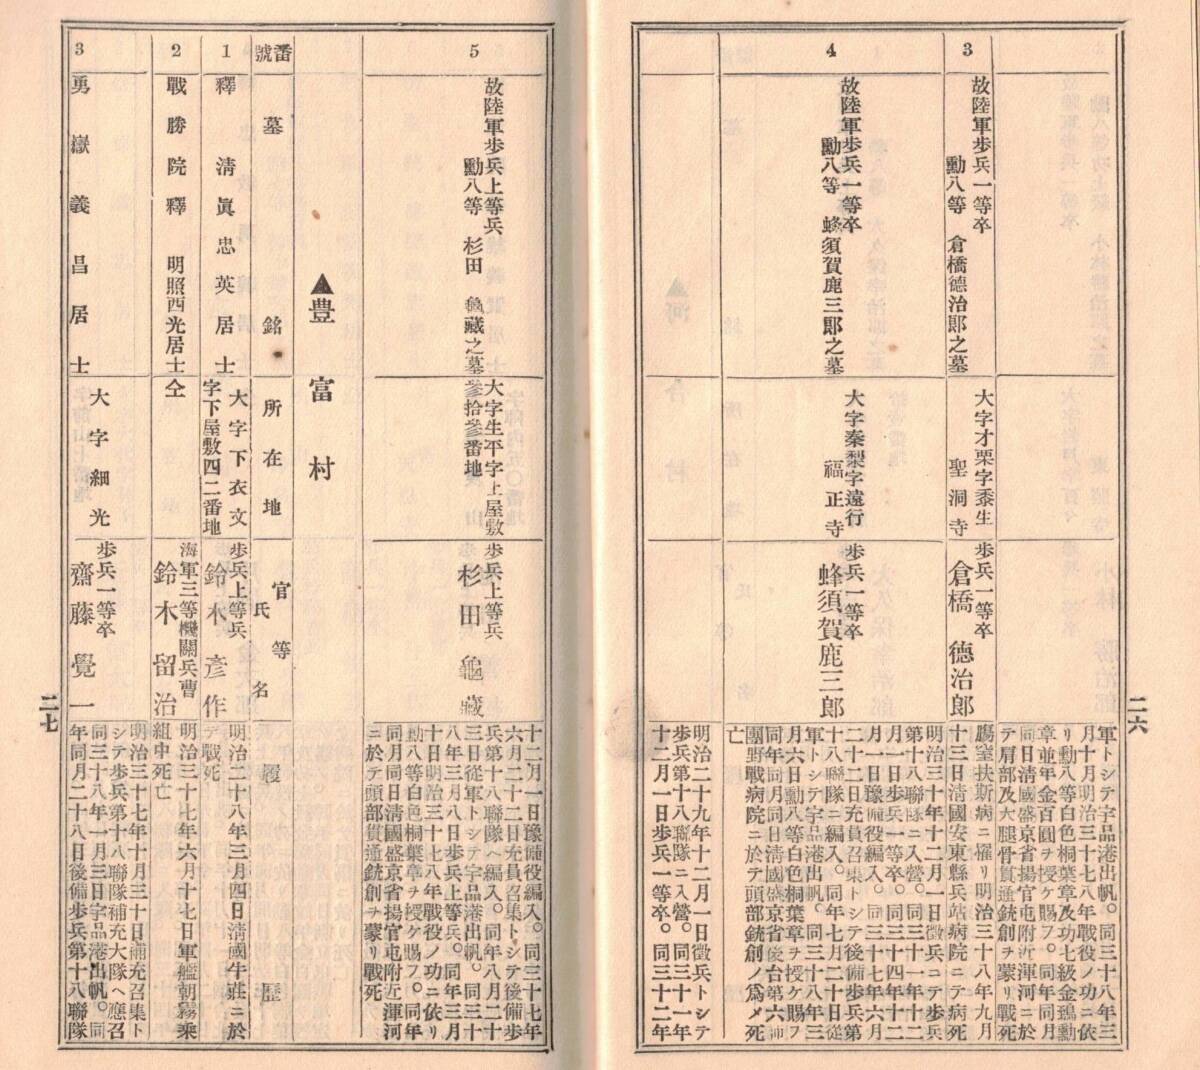 軍トシテ宇品港出帆。同三十八年三
月十日明治三十七八年戰役ノ功ニ依
リ勳八等白色桐葉章及功七級金鵄勳
章並年金百圓ヲ授ケ賜フ。同年同月
同日清國盛京省揚官屯附近渾河ニ於
テ肩部及大腿骨貫通銃創ヲ蒙リ戰死
3
故陸軍歩兵一等卒
勳八等 倉橋德治郎之墓
大字才栗字黍生
聖洞寺
歩兵一等卒
倉橋 德治郎
膓窒扶斯病ニ罹リ明治三十八年九月
十三日清國安東縣兵站病院ニテ病死
4
故陸軍歩兵一等卒
勳八等 蜂須賀鹿三郎之墓
大字秦梨字遠行
福正寺
歩兵一等卒
蜂須賀鹿三郎
明治三十年十二月一日徵兵ニテ歩兵
第十八聯隊ニ入營。同三十一年十二
月一日歩兵一等卒。同三十四年十二
月一日豫備役編入。同三十七年六月
二十二日充員召集トシテ後備歩兵第
十八聯隊ニ編入。同年七月二十日從
軍トシテ宇品港出帆。同三十八年三
月六日勳八等白色桐葉章ヲ授ケ賜フ
同年同月同日清國盛京省後台第六師
團野戰病院ニ於テ頭部銃創ノ爲メ死
亡
明治二十九年十二月一日徵兵トシテ
歩兵第十八聯隊ニ入營。同三十一年
十二月一日歩兵一等卒。同三十二年
二六
5
故陸軍歩兵上等兵
勳八等 杉田 龜藏之墓
大字生平字上屋敷
參拾參番地
歩兵上等兵
杉田 龜藏
十二月一日豫備役編入。同三十七年
六月二十二日充員召集トシテ後備歩
兵第十八聯隊ヘ編入。同年八月二十
三日從軍トシテ宇品港出帆。同三十
八年三月八日歩兵上等兵。同年三月
十日明治三十七八年戰役ノ功ニ依リ
勳八等白色桐葉章ヲ授ケ賜フ。同年
同月同日清國盛京省揚官屯附近渾河
ニ於テ頭部貫通銃創ヲ蒙リ戰死
▲豊富村
番號
墓銘
所在地
官等
氏名
履歴
1
釋清眞忠英居士
大字下衣文
字下屋敷四二番地
歩兵上等兵
鈴木彦作
明治二十八年三月四日淸國牛莊ニ於
テ戰死
2
戰勝院釋明照西光居士
仝
海軍三等機關兵曹
鈴木留治
明治三十七年六月十七日軍艦朝霧乘
組中死亡
3
勇嶽義昌居士
大字細光
歩兵一等卒
齋藤覺一
明治三十七年十月三十日補充召集ト
シテ歩兵第十八聯隊補充大隊ヘ應召
同三十八年一月三日宇品港出帆。同
年同月二十八日後備歩兵第十八聯隊
二七